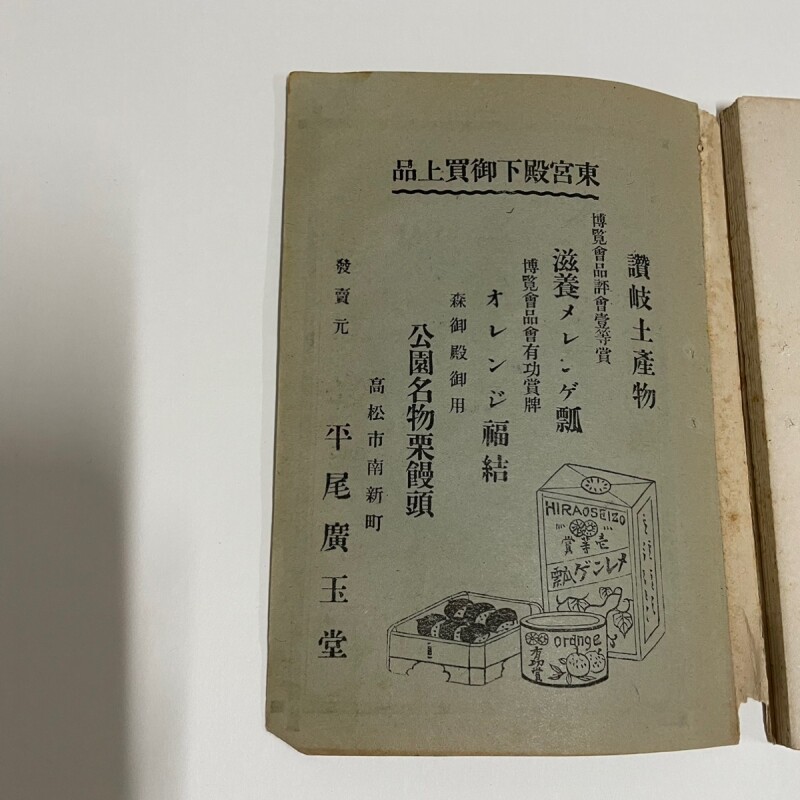 東宮殿下御買上品
讚岐土產物
博覧會品評會壹等賞
滋養メレンゲ瓢
博覧會品會有功賞牌
オレンジ福結
森御殿御用
公園名物栗饅頭
高松市南新町
發賣元
平尾廣玉堂
HIRAOSEIZO
壱等賞
メレンゲ瓢
orange
有功賞